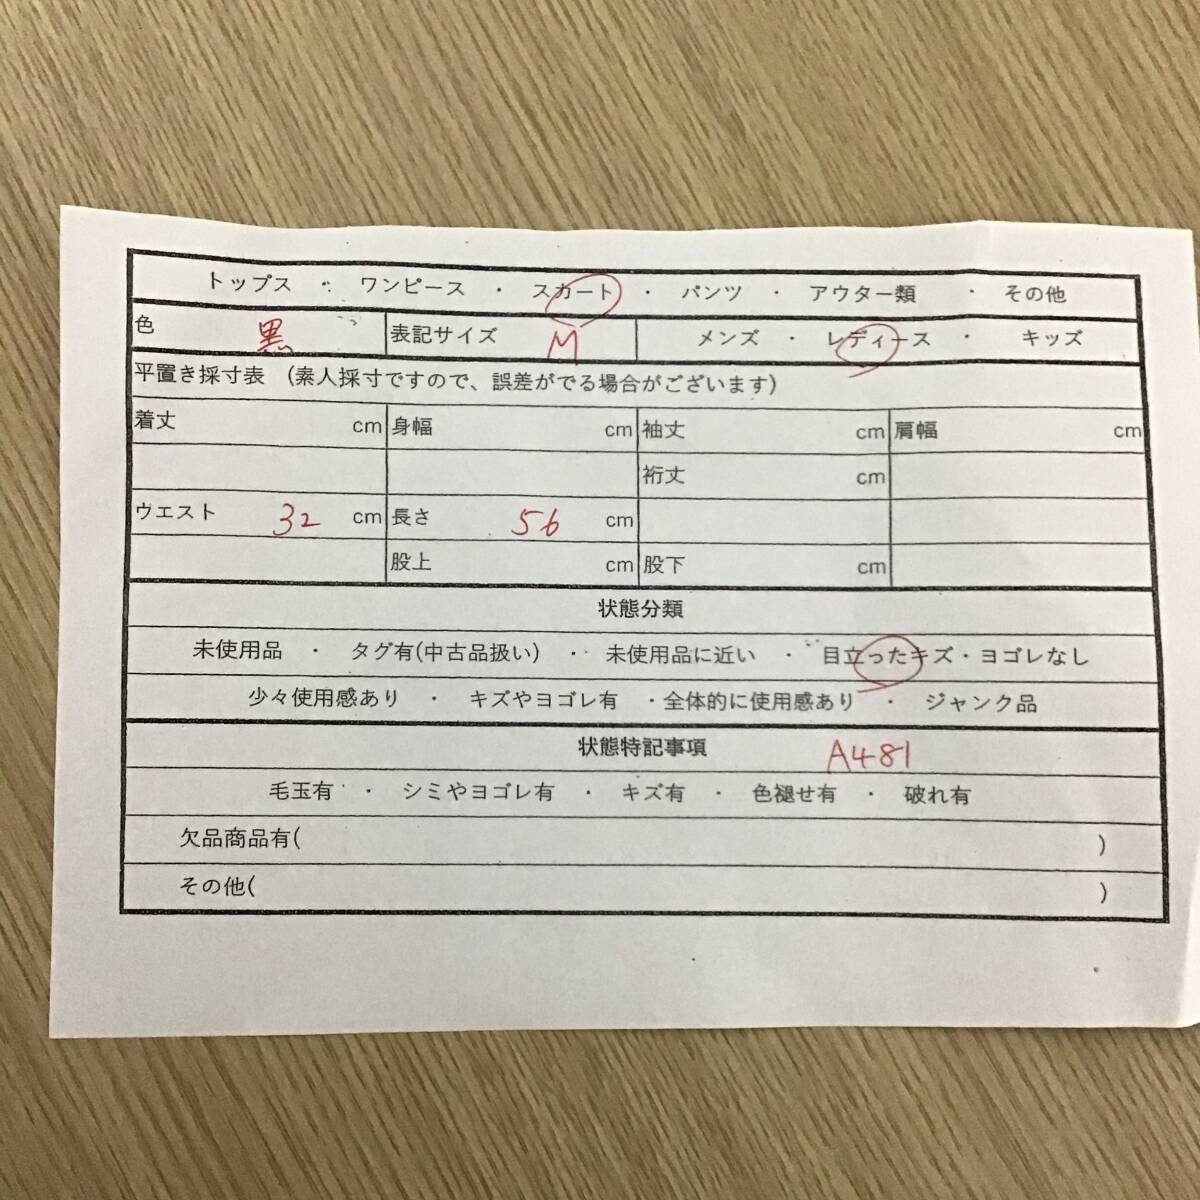 トップス ・ ワンピース ・ スカート ・ パンツ ・ アウター類 ・ その他
色 黒 表記サイズ M メンズ ・ レディース ・ キッズ
平置き採寸表 (素人採寸ですので、誤差がでる場合がございます)
着丈 cm 身幅 cm 袖丈 cm 肩幅 cm
裄丈 cm
ウエスト 32 cm 長さ 56 cm
股上 cm 股下 cm
状態分類
未使用品 ・ タグ有(中古品扱い) ・ 未使用品に近い ・ 目立ったキズ・ヨゴレなし
少々使用感あり ・ キズやヨゴレ有 ・全体的に使用感あり ・ ジャンク品
状態特記事項 A481
毛玉有 ・ シミやヨゴレ有 ・ キズ有 ・ 色褪せ有 ・ 破れ有
欠品商品有( )
その他( )